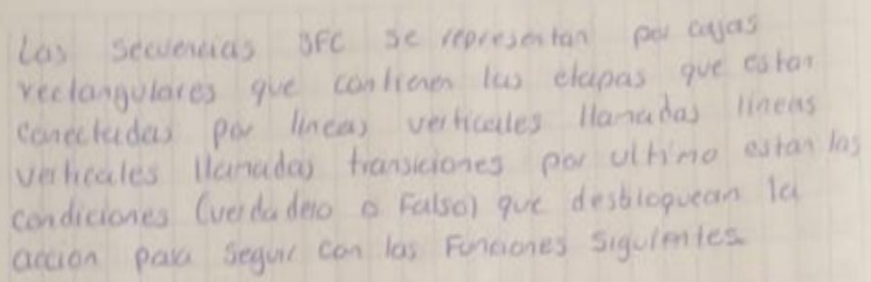 Las secuencias SFC se representan por cajas
rectangulares que contienen las etapas que estan
conectadas por lineas verticales llamadas lineas
verticales llamadas transiciones por ultimo estan las
condiciones (verdadero o Falso) que desbloquean la
accion para seguir con las Funciones siguientes.